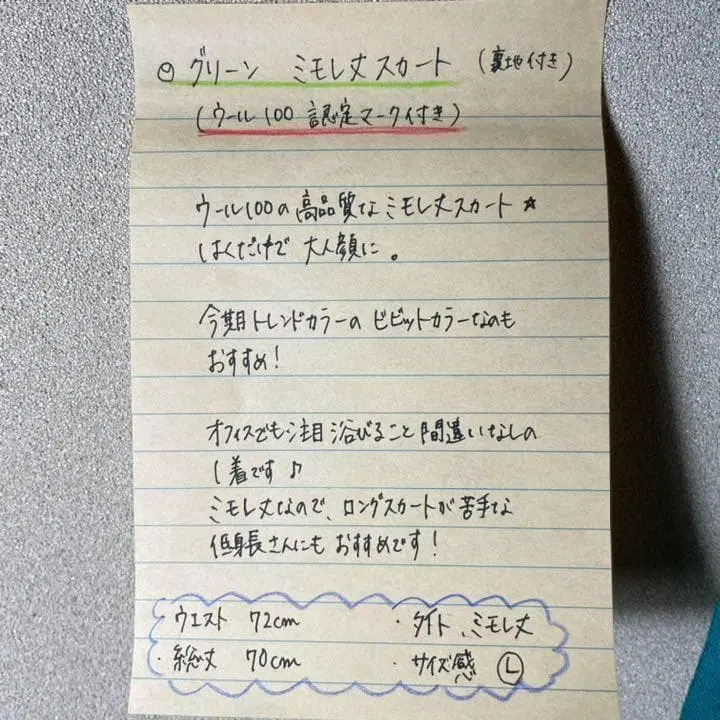 ◎ グリーン ミモレ丈スカート (裏地付き)
(ウール100 認定マーク付き)
ウール100の高品質なミモレ丈スカート☆
はくだけで 大人顔に。
今期トレンドカラーの ビビットカラーなのも
おすすめ!
オフィスでも注目浴びること間違いなしの
1着です♪
ミモレ丈なので、ロングスカートが苦手な
低身長さんにも おすすめです!
・ウエスト 72cm ・タイト、ミモレ丈
・総丈 70cm ・サイズ感 Ⓛ